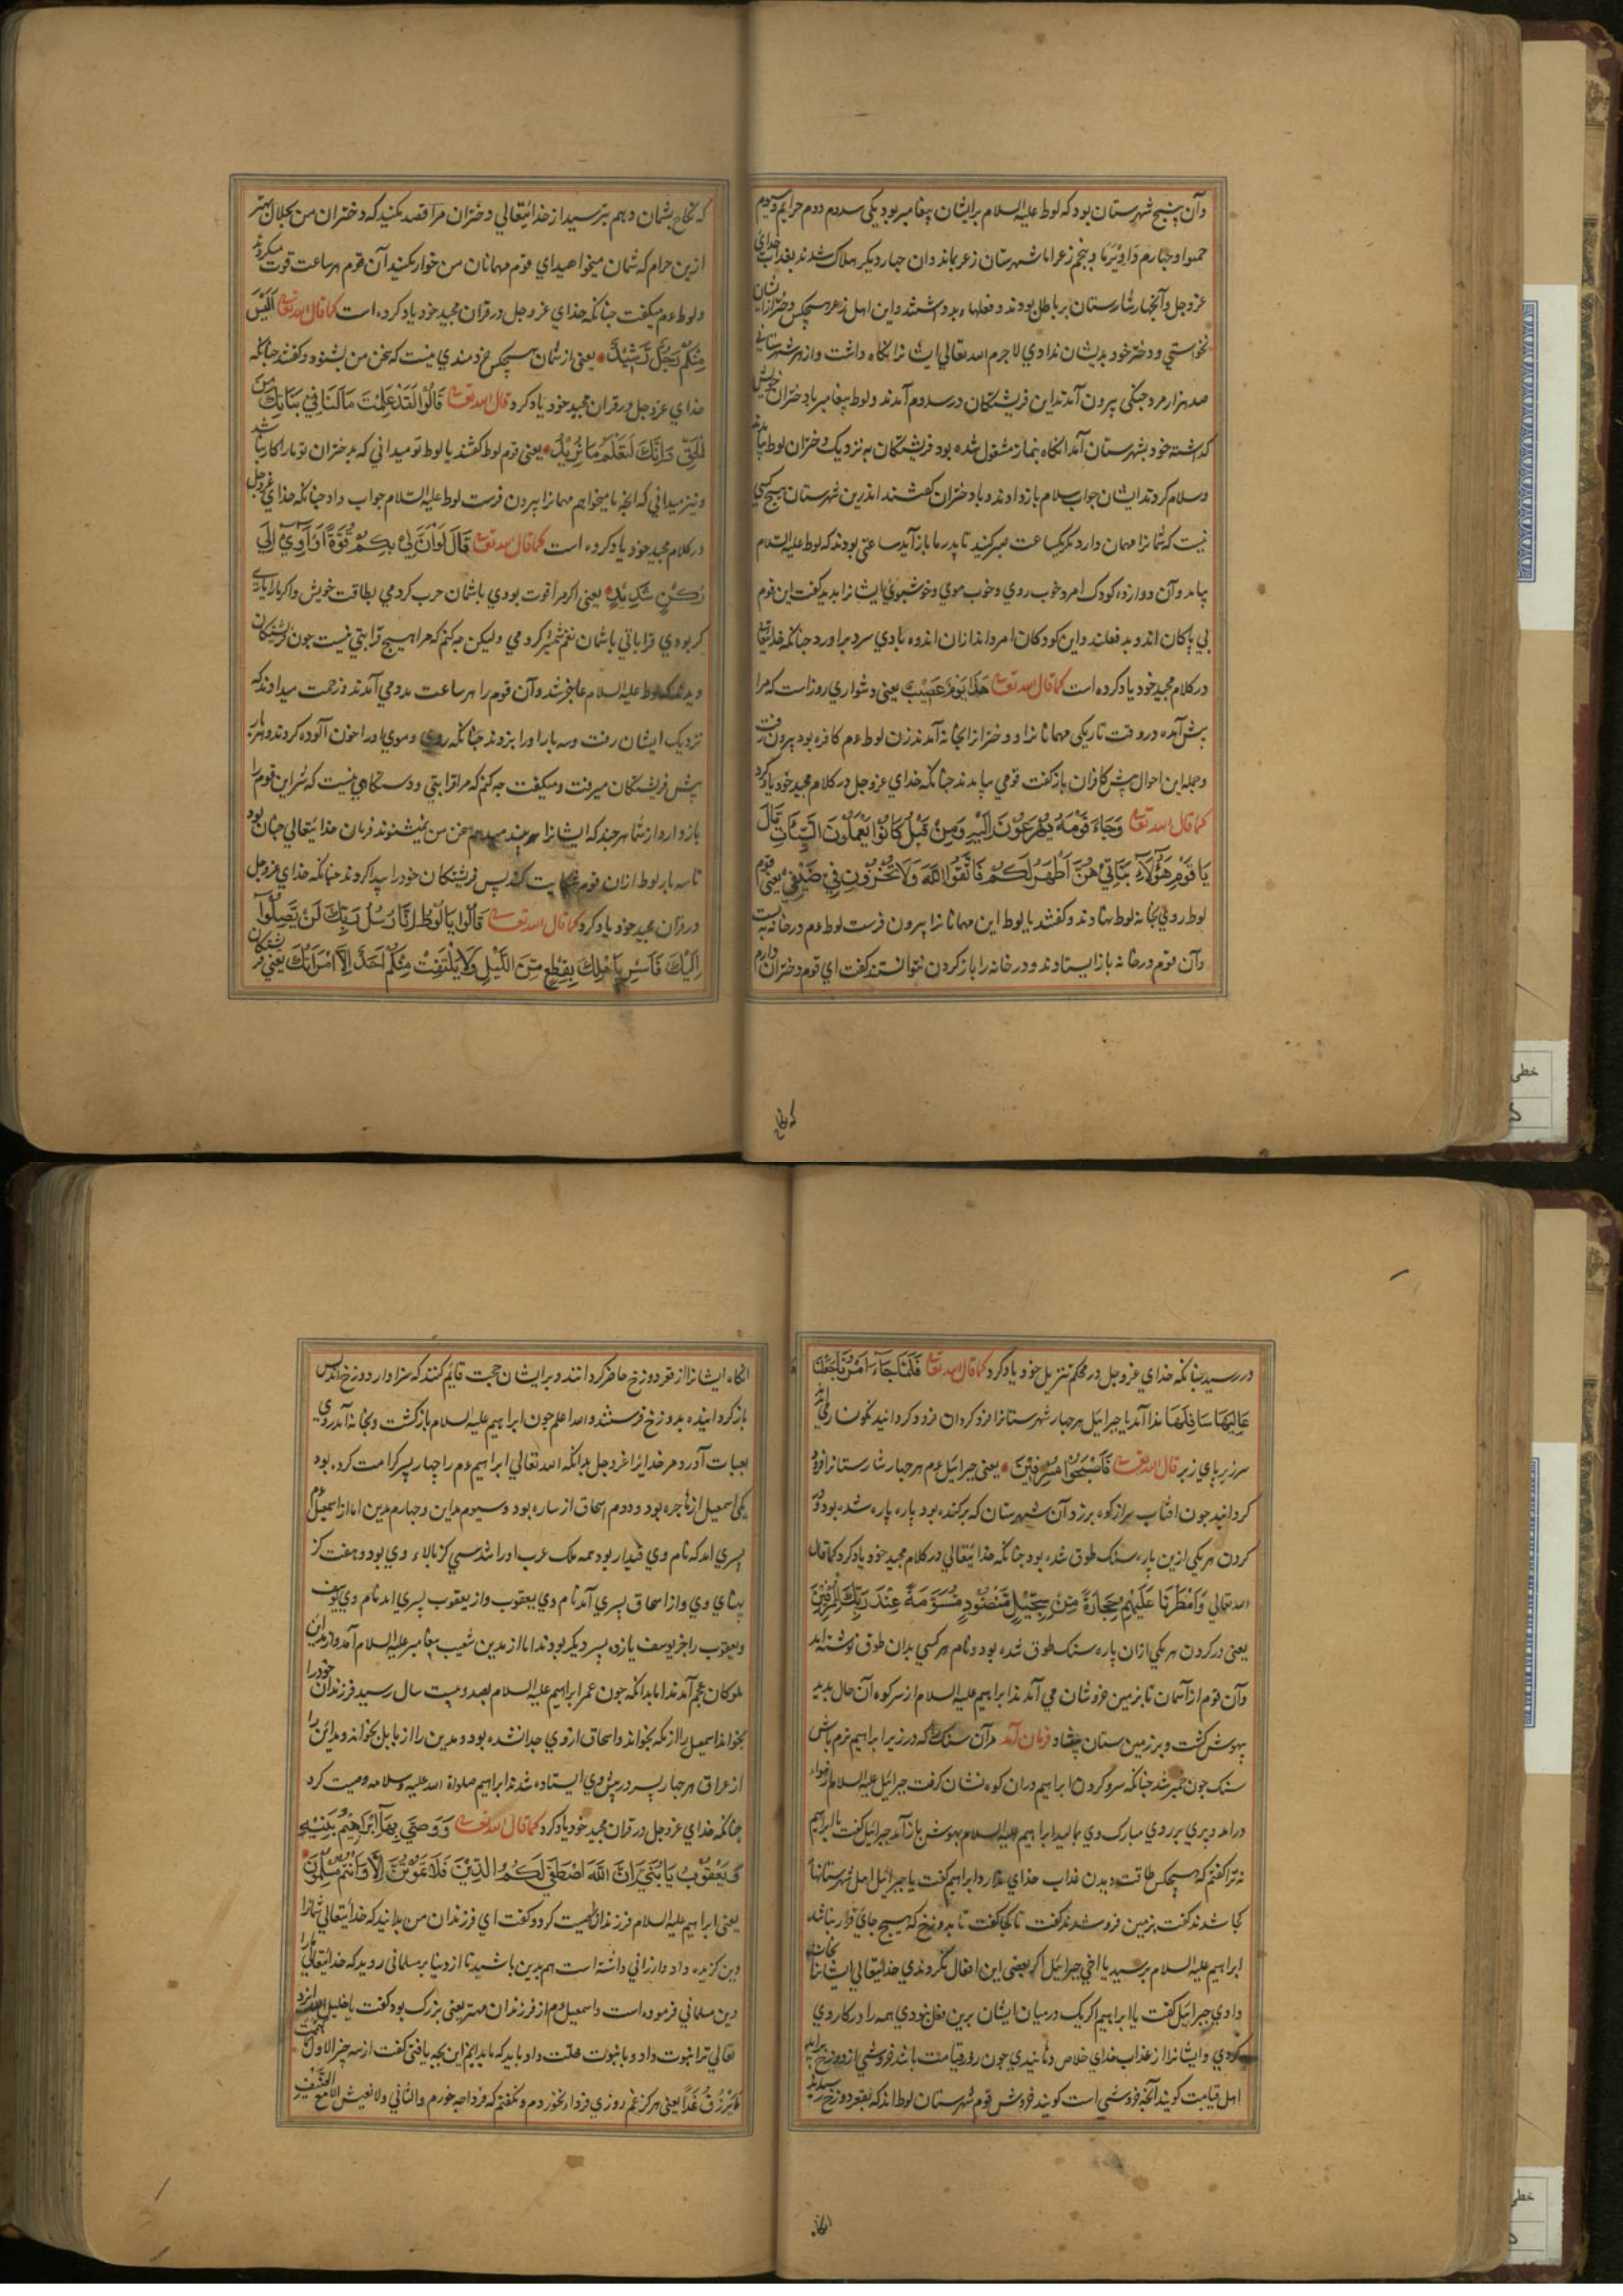 وآن پنج شهرستان بود که لوط علیه السلام برایشان پیغامبر بود یکی سدوم دوم
حمبوا و چهارم و پنجم زعر اما شهرستان زعر بماند وان چهار دیکر هلاک شدند بعذاب خدای
عزوجل و آنچهار شارستان بر باطل بودند و فعلهاء بد داشتند و این اهل زعر هیچکس دختر از ایشان
نخواستی و دختر خود بدیشان ندادی لاجرم الله تعالی ایشانرا نکاه داشت و از هر شهرستانی
صد هزار مرد جنکی بیرون آمدند این فریشتکان در سدوم آمدند و لوط پیغامبر با دختران خویش
کذاشته خود بشهرستان آمد انکاه بنماز مشغول شده بود فریشتکان به نزدیک دختران لوط
وسلام کردند ایشان جواب سلام باز دادند و با دختران کفتند اندرین شهرستان هیچ کسی
نیست که شمانرا مهمان دارد مکر یکساعت صبر کنید تا پدر ما باز آید ساعتی بودند که لوط علیه السلام
بیامد وآن دوازده کودک امرد خوب روی و خوب موی و خوشبوی ایشانرا بدید کفت این قوم
بی باکان اند و بد فعلند و این کودکان امرد اند ازان اندوه بادی سرد براورد چنانکه خدایتعالی
در کلام مجید خود یاد کرده است کما قال الله تعالی هَذَا یَوْمٌ عَصِیْبٌ یعنی دشواری روز است که مرا
پیش آمده در وقت تاریکی مهمانانرا و دخترانرا بخانه آمدند زن لوط ءم کافره بود بیرون رفت
وجمله این احوال پیش کافران باز کفت قومی بیامدند چنانکه خدای عزوجل در کلام مجید خود یاد کرد
کما قال الله تعالی وَجَاءَ قَوْمُهُ یُهْرَعُوْنَ اِلَیْهِ وَمِنْ قَبْلُ کَانُوْا یَعْمَلُوْنَ السَّیِّئَاتِ قَالَ
یَا قَوْمِ هَؤُلَآءِ بَنَاتِیْ هُنَّ اَطْهَرُ لَکُمْ فَاتَّقُوا اللّهَ وَلَا تُخْزُوْنِ فِیْ ضَیْفِیْ یعنی قوم
لوط روی بخانه لوط نهادند و کفتند یا لوط این مهمانانرا بیرون فرست لوط ءم در خانه به بست
وآن قوم در خانه باز ایستادند و در خانه را باز کردن نتوانستند کفت ای قوم دختران دارم
که نکاح
که نکاح بشمان دهم بترسید از خدایتعالی و دختران مرا قصد بکنید که دختران من بحلال بهتر
ازین حرام که شمان میخواهید ای قوم مهمانان من خوار مکنید آن قوم هر ساعت قوت میکردند
ولوط ءم میکفت چنانکه خدای عزوجل در قران مجید خود یاد کرده است کما قال الله تعالی اَلَیْسَ
مِنْکُمْ رَجُلٌ رَّشِیْدٌ یعنی از شمان هیچکس خردمندی نیست که سخن من بشنود و کفتند چنانکه
خدای عزوجل در قران مجید خود یاد کرد قال الله تعالی قَالُوْا لَقَدْ عَلِمْتَ مَا لَنَا فِیْ بَنَاتِکَ مِنْ
الْحَقِّ وَاِنَّکَ لَتَعْلَمُ مَا نُرِیْدُ یعنی قوم لوط کفتند یا لوط تو میدانی که بدختران تو ما را کار نباشد
ونیز میدانی که انچه ما میخواهیم مهمانرا بیرون فرست لوط علیه السلام جواب داد چنانکه خدای عزوجل
در کلام مجید خود یاد کرده است کما قال الله تعالی قَالَ لَوْ اَنَّ لِیْ بِکُمْ قُوَّةً اَوْ آوِیْ اِلَی
رُکْنٍ شَدِیْدٍ یعنی اکر مرا قوت بودی باشمان حرب کردمی بطاقت خویش و اکر مرا یاری
کر بودی قراباتی باشمان کردمی ولیکن چه کنم که مرا هیچ قرابتی نیست چون فریشتکان
دیدند که لوط علیه السلام عاجز شد وآن قوم را هر ساعت مددمی آمدند و زحمت میدادند که
نزدیک ایشان رفت و سه بار اورا بزدند چنانکه روی و موی اورا خون آلوده کردند و هر بار
پیش فریشتکان میرفت و میکفت چه کنم که مرا قرابتی و دستکاهی نیست که شر این قوم را
باز دارد از شما هرچند که ایشانرا پند میدهم سخن من نمیشنوند فرمان خدایتعالی چنان بود
تا سه بار لوط ازان قوم شکایت کند پس فریشتکان خود را پیدا کردند چنانکه خدای عزوجل
در قران مجید خود یاد کرد کما قال الله تعالی قَالُوْا یَا لُوْطُ اِنَّا رُسُلُ رَبِّکَ لَنْ یَّصِلُوْآ
اِلَیْکَ فَاَسْرِ بِاَهْلِکَ بِقِطْعٍ مِّنَ اللَّیْلِ وَلَا یَلْتَفِتْ مِنْکُمْ اَحَدٌ اِلَّا امْرَاَتَکَ یعنی فریشتکان
در رسید چنانکه خدای عزوجل در محکم تنزیل خود یاد کرد کما قال الله تعالی فَلَمَّا جَاءَ اَمْرُنَا جَعَلْنَا
عَالِیَهَا سَافِلَهَا ندا آمد یا جبرائیل هر چهار شهرستانرا فرو کردان فرود کردانید نکونسار
سر زیر پای زبر قال الله تعالی فَاَصْبَحُوْا یعنی جبرائیل ءم هر چهار شارستانرا فرود
کردانید چون افتاب سر از کوه برزد وآن شهرستان که برکنده بود پاره پاره شده بود و در
کردن هر یکی ازین پاره سنک طوق شده بود چنانکه خدایتعالی در کلام مجید خود یاد کرد کما قال
الله تعالی وَاَمْطَرْنَا عَلَیْهِمْ حِجَارَةً مِّنْ سِجِّیْلٍ مَّنْضُوْدٍ مُّسَوَّمَةً عِنْدَ رَبِّکَ
یعنی در کردن هر یکی ازان پاره سنک طوق شده بود و نام هر کسی بدان طوق نوشته اند
وآن قوم از آسمان تا بزمین خروشان می آمدند ابراهیم علیه السلام از سر کوه آن حال بدید
بیهوش کشت و بر زمین ستان بیفتاد فرمان آمد مرآن سنک را که در زیر ابراهیم نرم باش
سنک چون خمیر شد چنانکه سر و کردن ابراهیم دران کوه نشان کرفت جبرائیل علیه السلام از هواء
درامد و پری بر روی مبارک وی بمالید ابراهیم علیه السلام بهوش باز آمد جبرائیل کفت یا ابراهیم
نه ترا کفتم که هیچکس طاقت دیدن عذاب خدای ندارد ابراهیم کفت یا جبرائیل اهل شهرستانها
کجا شدند کفت بزمین فرو شدند کفت تا کجا کفت تا بدوزخ که هیچ جای قرار نباشد
ابراهیم علیه السلام پرسید یا اخی جبرائیل اکر بعضی این افعال نکردندی خدایتعالی ایشانرا نجات
دادی جبرائیل کفت یا ابراهیم اکر یک در میان ایشان برین فعل نبودی همه را در کار وی
کردی و ایشانرا از عذاب خدای خلاص دهانیدی چون روز قیامت باشد خروشی از دوزخ براید
اهل قیامت کویند آنچه خروشی است کویند خروش قوم شهرستان لوط اند که بقعر دوزخ رسیدند
انکاه
انکاه ایشانرا از قعر دوزخ حاضر کردانند و برایشان حجت قایم کنند که سزاوار دوزخ اند پس
باز کردانیده بدوزخ فرستند والله اعلم چون ابراهیم علیه السلام باز کشت و بخانه آمد روی
بعبادت آورد مر خدایرا عزوجل بدانکه الله تعالی ابراهیم ءم را چهار پسر کرامت کرده بود
یکی اسمعیل از هاجره بود و دوم اسحاق از ساره بود و سیوم مداین و چهارم مدین اما از اسمعیل ءم
پسری امد که نام وی قیدار بود همه ملک عرب اورا شد سی کز بالاء وی بود و هفت کز
پهنای وی و از اسحاق پسری آمد نام وی یعقوب و از یعقوب پسری امد نام وی یوسف
ویعقوب را جز یوسف یازده پسر دیکر بودند اما از مدین شعیب پیغامبر علیه السلام آمد و از مداین
ملوکان عجم آمدند اما بدانکه چون عمر ابراهیم علیه السلام بصد و بیست سال رسید فرزندان خود را
بخواند اسمعیل را از مکه بخواند و اسحاق از وی جدا نشده بود و مدین را از بابل بخواند و مداین را
از عراق هر چهار پسر در پیش وی ایستاده شدند ابراهیم صلواة الله علیه و سلامه وصیت کرد
چنانکه خدای عزوجل در قران مجید خود یاد کرد کما قال الله تعالی وَوَصّی بِهَآ اِبْرَاهِیْمُ بَنِیْهِ
وَیَعْقُوْبُ یَا بُنَیَّ اِنَّ اللّهَ اصْطَفَی لَکُمُ الدِّیْنَ فَلَا تَمُوْتُنَّ اِلَّا وَاَنْتُمْ مُّسْلِمُوْنَ
یعنی ابراهیم علیه السلام فرزندان وصیت کرد و کفت ای فرزندان من بدانید که خدایتعالی شمانرا
دین کزیده داد و ارزانی داشته است هم بدین باشید تا از دنیا بر مسلمانی روید که خدایتعالی مارا
دین مسلمانی فرموده است و اسمعیل ءم از فرزندان مهتر یعنی بزرک بود کفت یا خلیل الله
تعالی ترا نبوت داد و با نبوت خلت داد باید که ما بدانیم این بچه یافتی کفت از سه چیز الاول
یَرْزُقُ غَدًا یعنی هرکز غم روزی فردا نخوردم و نکفتم که فردا چه خورم والثانی ولا تعیش الا مع الضیف
خطی
خطی